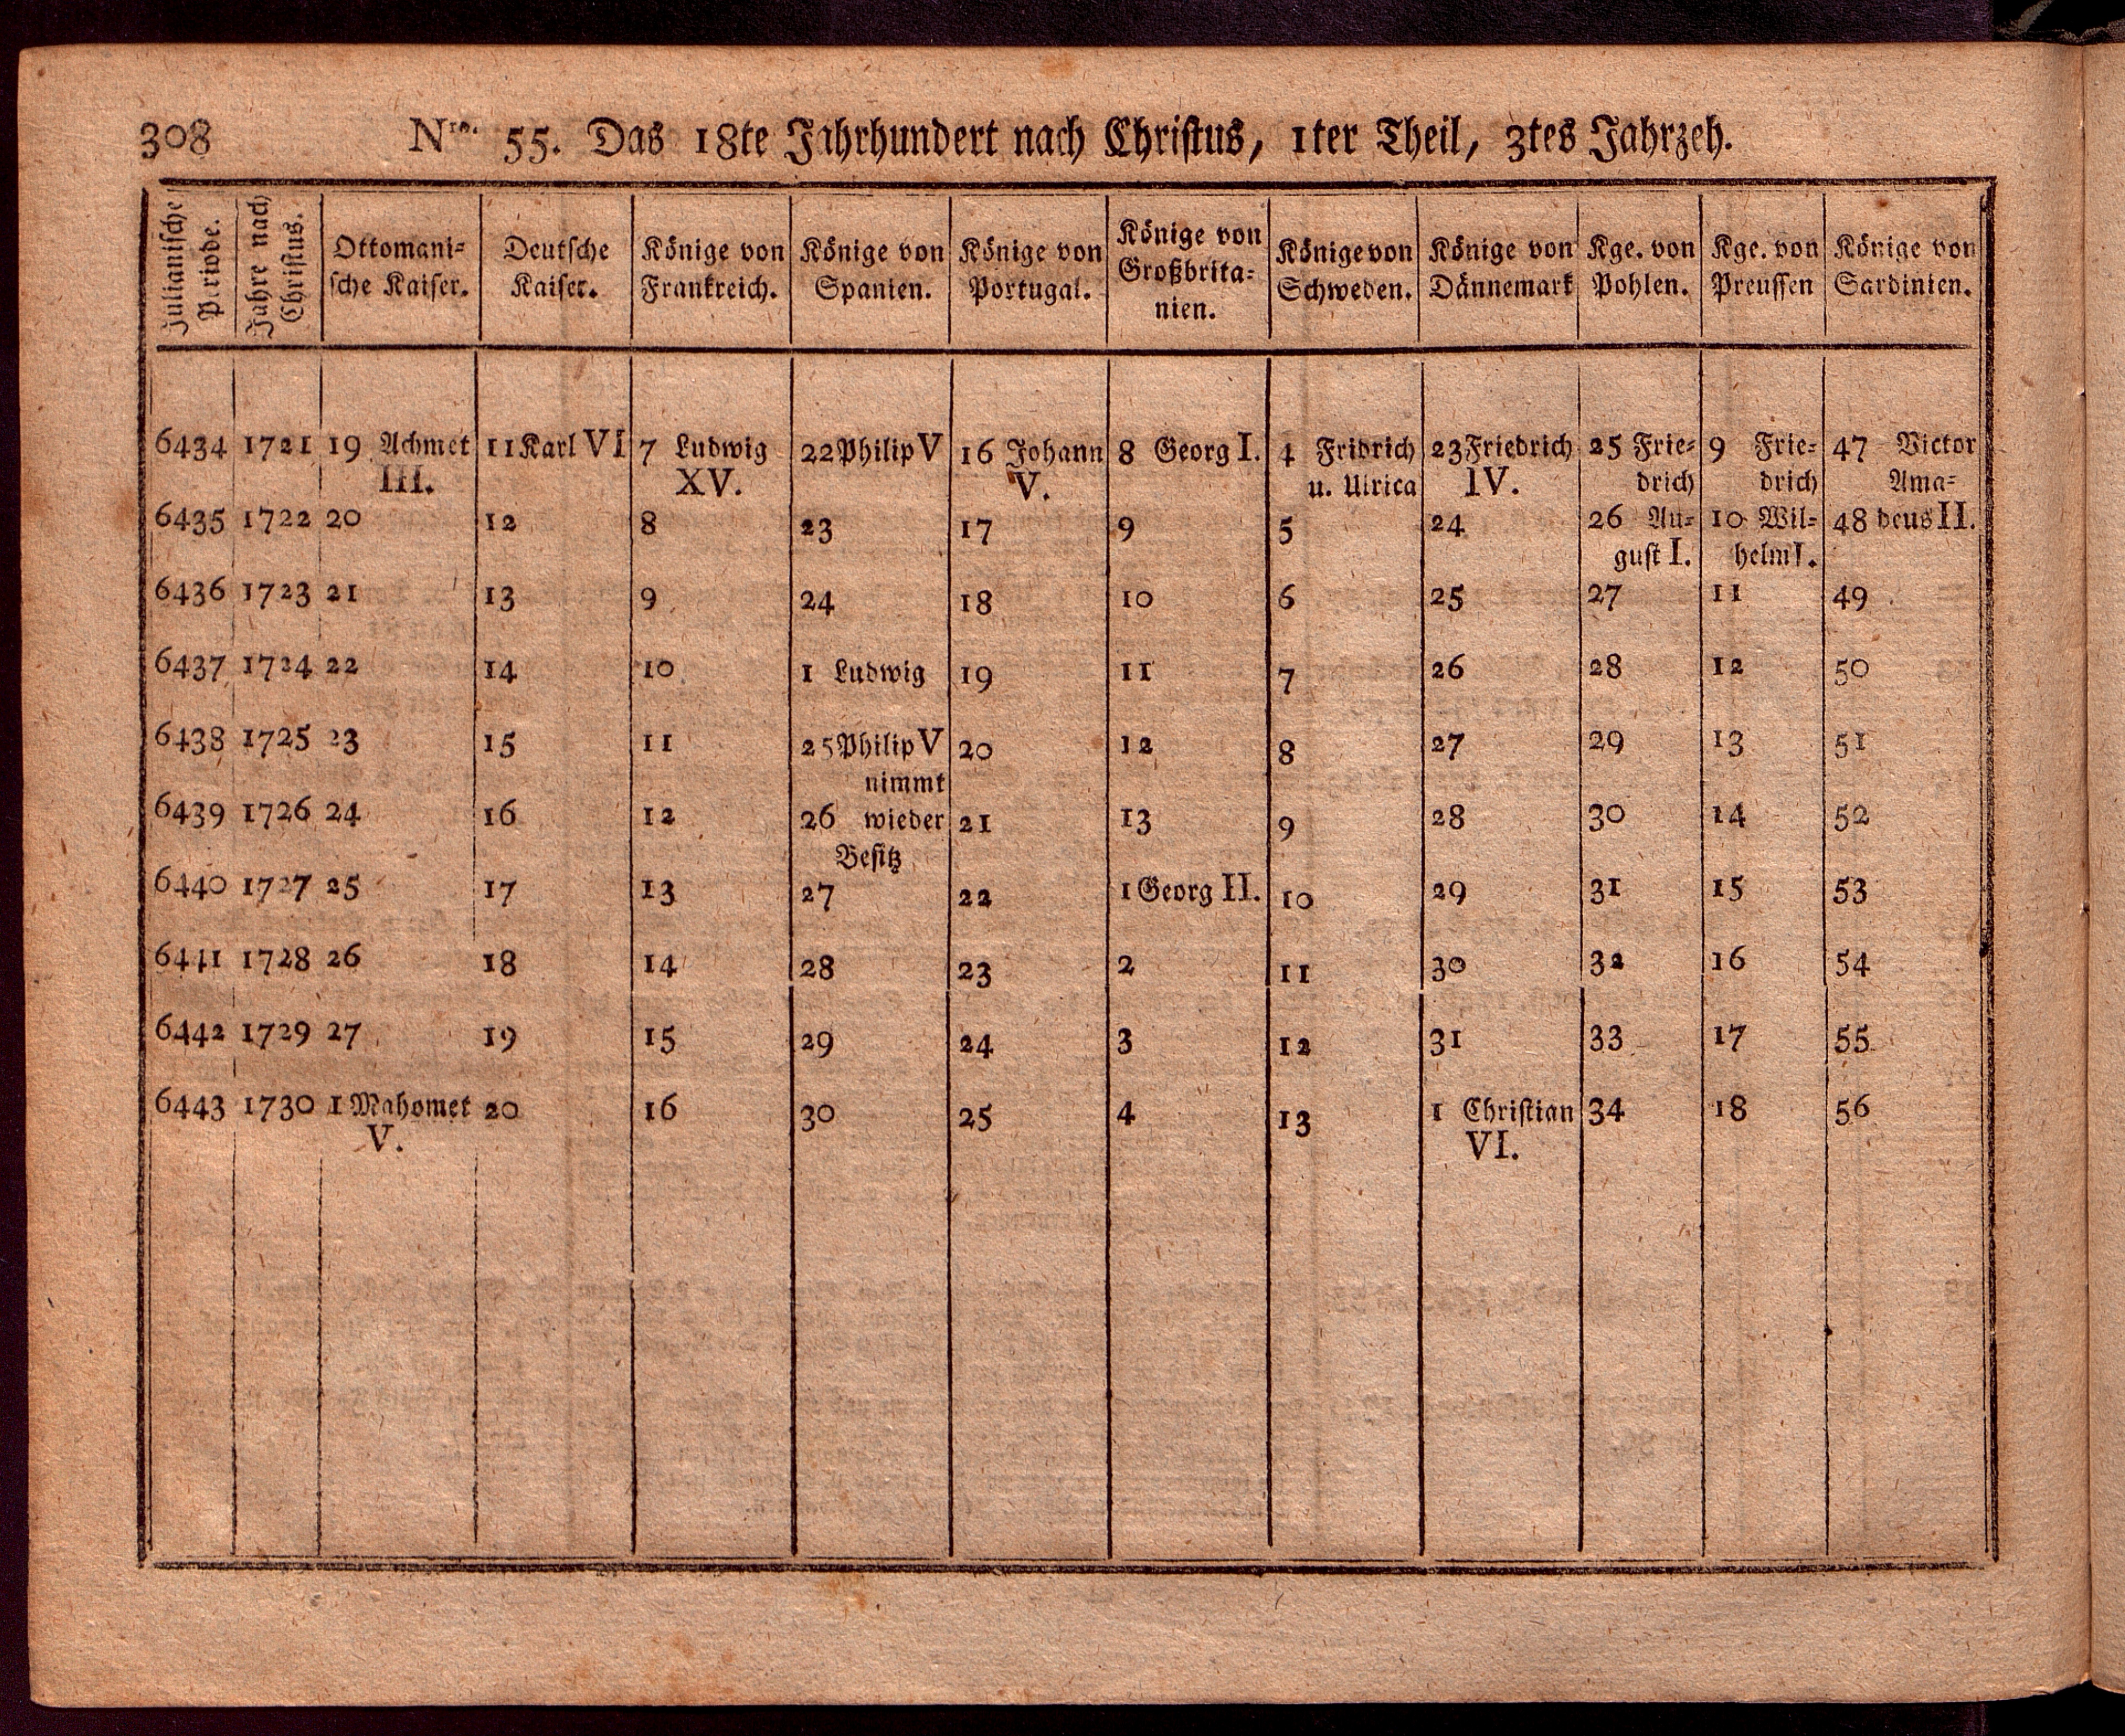 308 Nro. 55. Das 18te Jahrhundert nach Christus, 1ter Theil, 3tes Jahrzeh.
Julianische Periode. Jahre nach Christus. Ottomani= sche Kaiser. Deutsche Kaiser. Könige von Frankreich. Könige von Spanien. Könige von Portugal. Könige von Großbrita= nien. Könige von Schweden. Könige von Dännemark Kge. von Pohlen. Kge. von Preussen Könige von Sardinien.
6434 1721 19 Achmet 11 Karl VI 7 Ludwig 22 Philip V 16 Johann 8 Georg I. 4 Fridrich 23 Friedrich 25 Frie= 9 Frie= 47 Victor
III. XV. V. u. Ulrica IV. drich drich Ama=
6435 1722 20 12 8 23 17 9 5 24 26 Au= 10 Wil= 48 deus II.
gust I. helm I.
6436 1723 21 13 9 24 18 10 6 25 27 11 49
6437 1724 22 14 10 1 Ludwig 19 11 7 26 28 12 50
6438 1725 23 15 11 25 Philip V 20 12 8 27 29 13 51
nimmt
6439 1726 24 16 12 26 wieder 21 13 9 28 30 14 52
Besitz
6440 1727 25 17 13 27 22 1 Georg II. 10 29 31 15 53
6441 1728 26 18 14 28 23 2 11 30 32 16 54
6442 1729 27 19 15 29 24 3 12 31 33 17 55
6443 1730 1 Mahomet 20 16 30 25 4 13 1 Christian 34 18 56
V. VI.